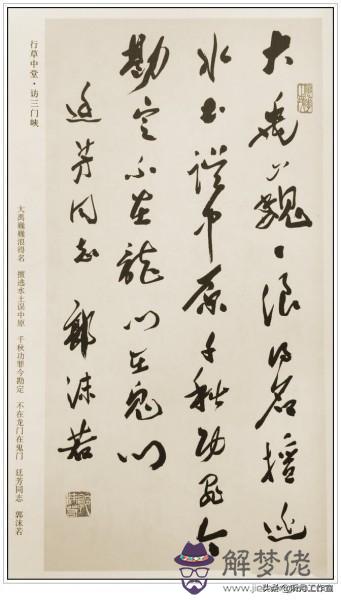 大禹巍〻浪得名擅逃
水土误中原千秋功罪今
勘定不在龍门在鬼门
廷芳同志 郭沫若
行草中堂·访三门峡
大禹巍巍浪得名 擅逃水土误中原 千秋功罪今勘定 不在龙门在鬼门 廷芳同志 郭沫若
解梦佬